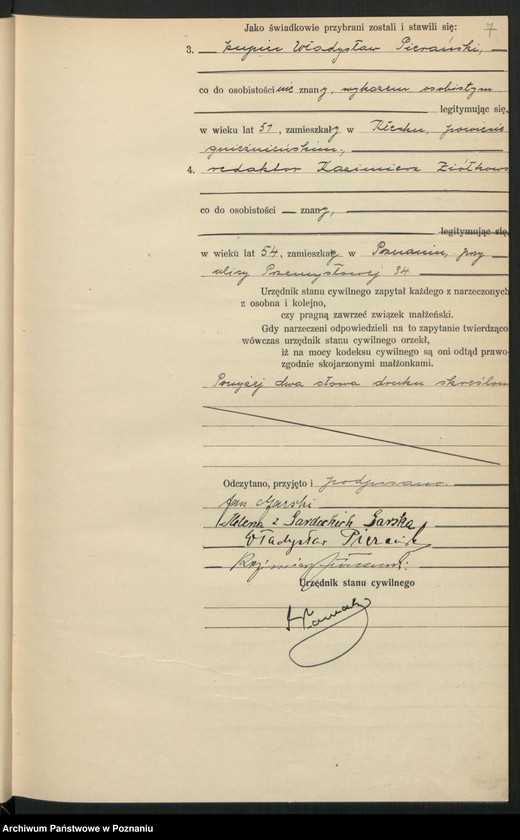 7
Jako świadkowie przybrani zostali i stawili się:
3. kupiec Władysław Pierański,
co do osobistości nie znany, wykazem osobistym
legitymując się,
w wieku lat 51, zamieszkały w Kłecku, powiecie
gnieźnieńskim,
4. redaktor Kazimierz Ziółkows
co do osobistości — znany,
legitymując się,
w wieku lat 54, zamieszkały w Poznaniu, przy
ulicy Przemysłowej 34
Urzędnik stanu cywilnego zapytał każdego z narzeczonych
z osobna i kolejno,
czy pragną zawrzeć związek małżeński.
Gdy narzeczeni odpowiedzieli na to zapytanie twierdząco
wówczas urzędnik stanu cywilnego orzekł,
iż na mocy kodeksu cywilnego są oni odtąd prawo-
zgodnie skojarzonymi małżonkami.
Powyżej dwa słowa druku skreślon
Odczytano, przyjęto i podpisano.
Jan Garski
Helena z Gardockich Garska
Władysław
Urzędnik stanu cywilnego
Archiwum Państwowe w Poznaniu